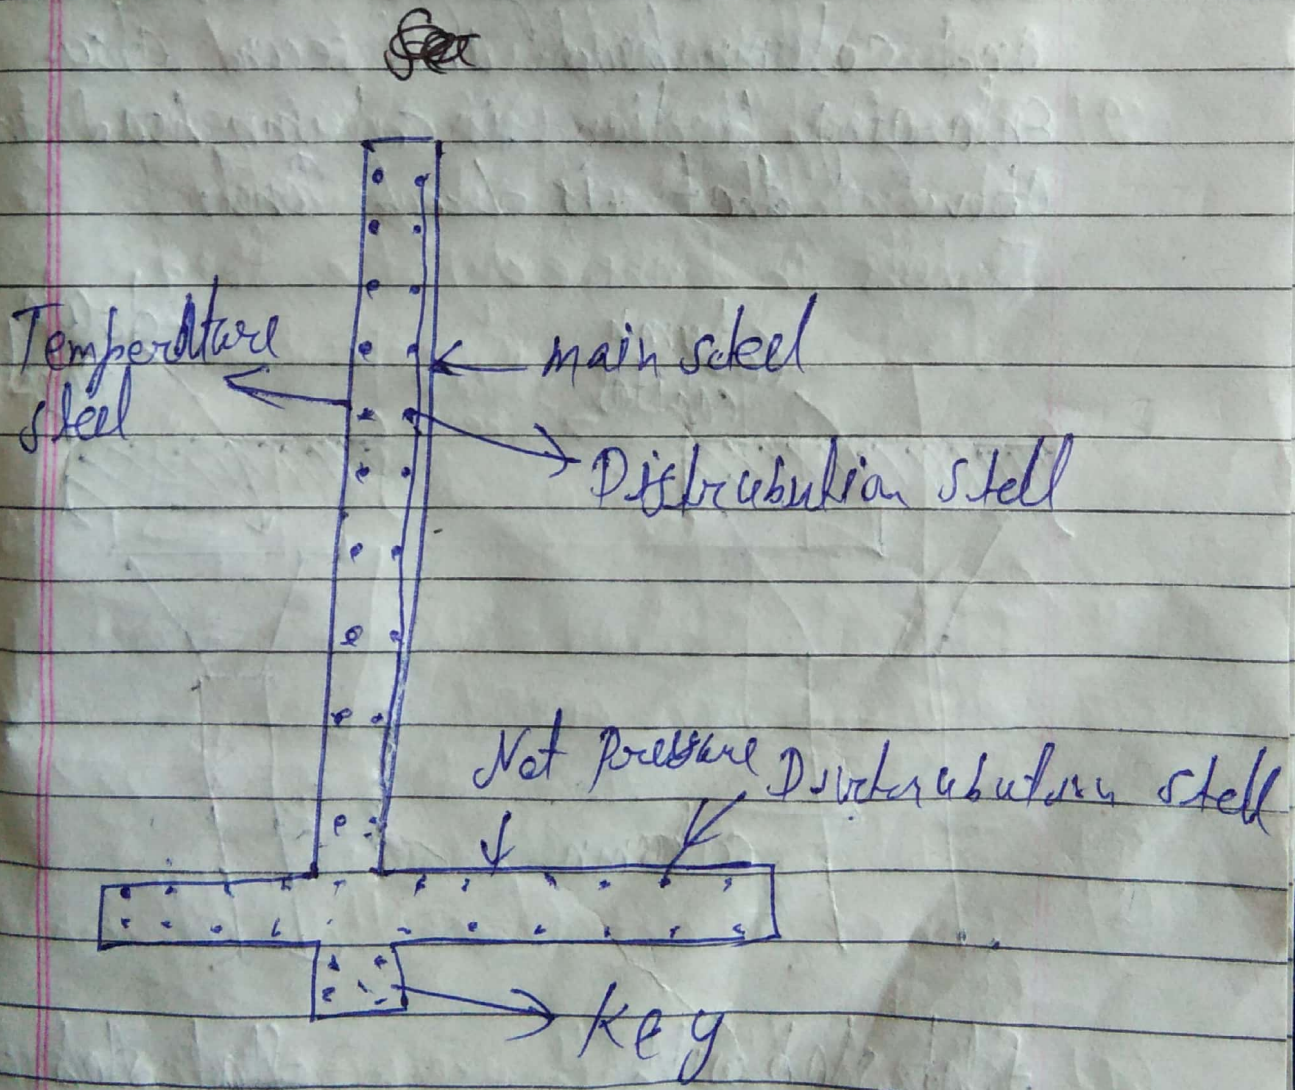 Temperature
steel
main steel
Distrubution stell
Net Pressure
Distrubution stell
Key